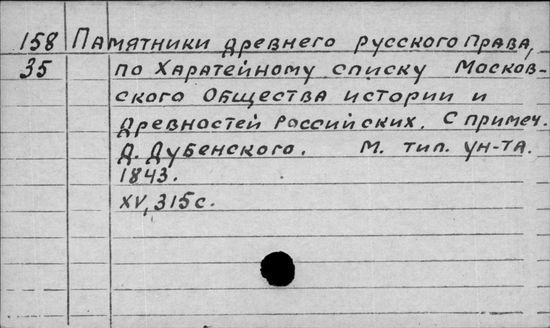 158 Памятники древнего русского Права,
35 по Харатейному списку Москов-
ского Общества истории и
древностей Российских. С примеч.
Д. Дубенского. М. тип. ун-та.
1843.
XV, 315 с.